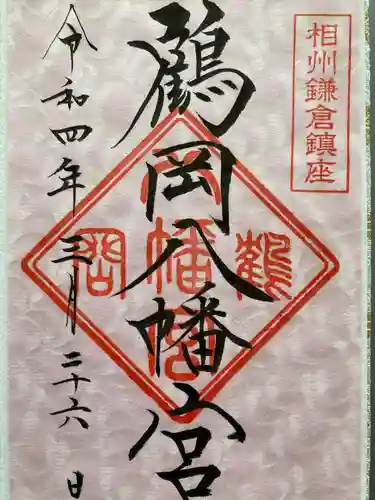 相州鎌倉鎮座
鶴岡八幡宮
令和四年三月二十六日
八幡宮
鶴
岡